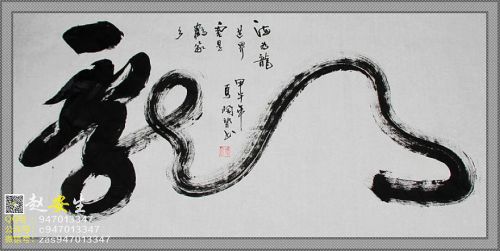 龍
海为龍
世界
雲是
鶴家
乡
甲午年
赵安生
QQ号：947013347
公众号：c947013347
微信号：zas947013347